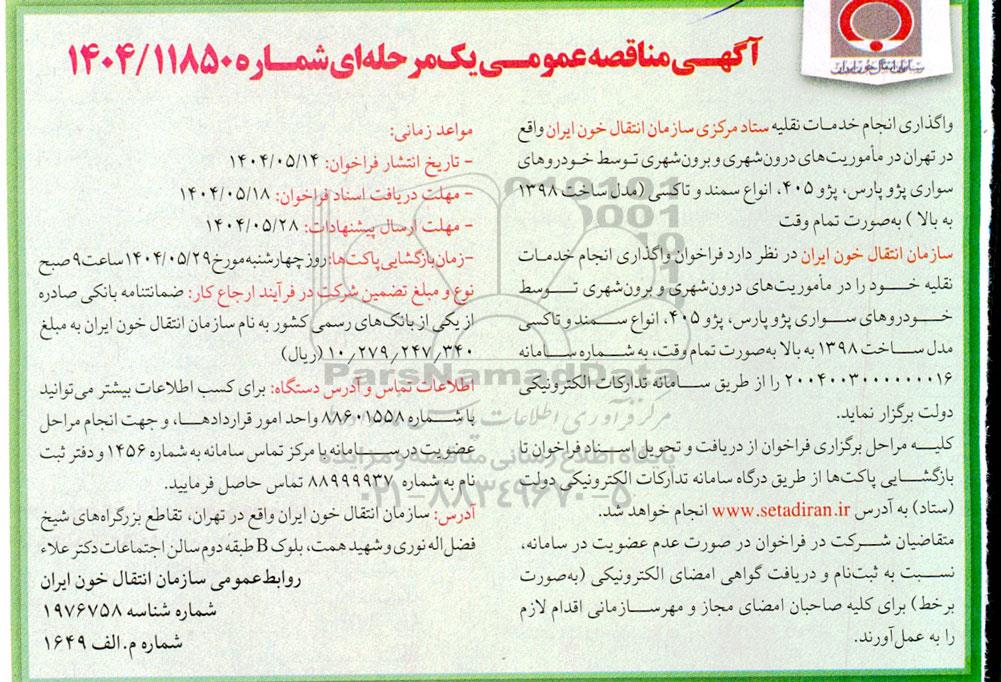 سازمان انتقال خون ایران
آگهی مناقصه عمومی یک مرحله‌ای شماره ۱۴۰۴/۱۱۸۵۰
واگذاری انجام خدمات نقلیه ستاد مرکزی سازمان انتقال خون ایران واقع
در تهران در مأموریت‌های درون‌شهری و برون‌شهری توسط خودروهای
سواری پژو پارس، پژو ۴۰۵، انواع سمند و تاکسی (مدل ساخت ۱۳۹۸
به بالا ) به‌صورت تمام وقت
سازمان انتقال خون ایران در نظر دارد فراخوان واگذاری انجام خدمات
نقلیه خود را در مأموریت‌های درون‌شهری و برون‌شهری توسط
خودروهای سواری پژو پارس، پژو ۴۰۵، انواع سمند و تاکسی
مدل ساخت ۱۳۹۸ به بالا به‌صورت تمام وقت، به شماره سامانه
۲۰۰۴۰۰۳۰۰۰۰۰۰۰۱۶ را از طریق سامانه تدارکات الکترونیکی
دولت برگزار نماید.
کلیه مراحل برگزاری فراخوان از دریافت و تحویل اسناد فراخوان تا
بازگشایی پاکت‌ها از طریق درگاه سامانه تدارکات الکترونیکی دولت
(ستاد) به آدرس www.setadiran.ir انجام خواهد شد.
متقاضیان شرکت در فراخوان در صورت عدم عضویت در سامانه،
نسبت به ثبت‌نام و دریافت گواهی امضای الکترونیکی (به‌صورت
برخط) برای کلیه صاحبان امضای مجاز و مهر سازمانی اقدام لازم
را به عمل آورند.
مواعد زمانی:
- تاریخ انتشار فراخوان: ۱۴۰۴/۰۵/۱۴
- مهلت دریافت اسناد فراخوان: ۱۴۰۴/۰۵/۱۸
- مهلت ارسال پیشنهادات: ۱۴۰۴/۰۵/۲۸
-زمان بازگشایی پاکت‌ها: روز چهارشنبه مورخ ۱۴۰۴/۰۵/۲۹ ساعت ۹ صبح
نوع و مبلغ تضمین شرکت در فرآیند ارجاع کار: ضمانتنامه بانکی صادره
از یکی از بانک‌های رسمی کشور به نام سازمان انتقال خون ایران به مبلغ
۱۰٫۲۷۹٫۲۴۷٫۳۴۰ (ریال)
اطلاعات تماس و آدرس دستگاه: برای کسب اطلاعات بیشتر می‌توانید
با شماره ۸۸۶۰۱۵۵۸ واحد امور قراردادها، و جهت انجام مراحل
عضویت در سامانه با مرکز تماس سامانه به شماره ۱۴۵۶ و دفتر ثبت
نام به شماره ۸۸۹۹۹۹۳۷ تماس حاصل فرمایید.
آدرس: سازمان انتقال خون ایران واقع در تهران، تقاطع بزرگراه‌های شیخ
فضل اله نوری و شهید همت، بلوک B طبقه دوم سالن اجتماعات دکتر علاء
روابط عمومی سازمان انتقال خون ایران
شماره شناسه ۱۹۷۶۷۵۸
شماره م.الف ۱۶۴۹
ParsNamadData
مرکز فرآوری اطلاعات
پایگاه اطلاع رسانی مناقصه و مزایده
۰۲۱-۸۸۳۴۹۶۷۰-۵